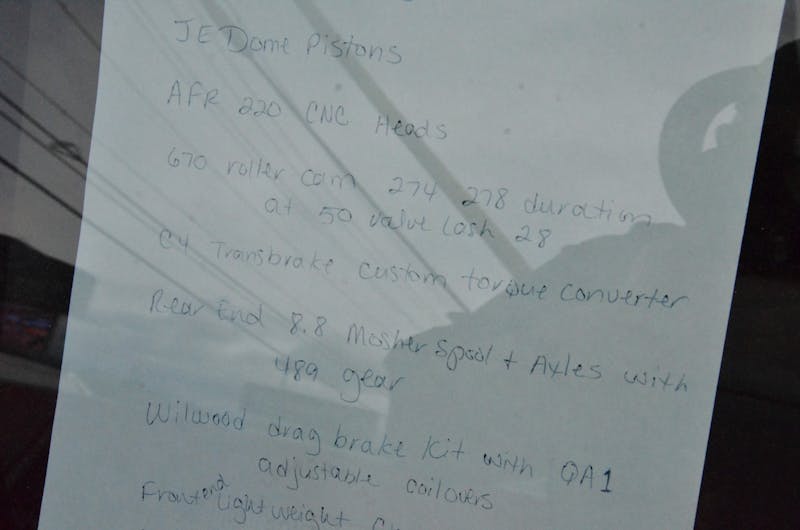 JE Dome Pistons
AFR 220 CNC Heads
670 roller cam 274 278 duration
at 50 valve Lash 28
C4 Transbrake custom torque converter
Rear End 8.8 Mosher Spool + Axles with
489 gear
Wilwood drag brake Kit with QA1
adjustable coilovers
Front end Light weight